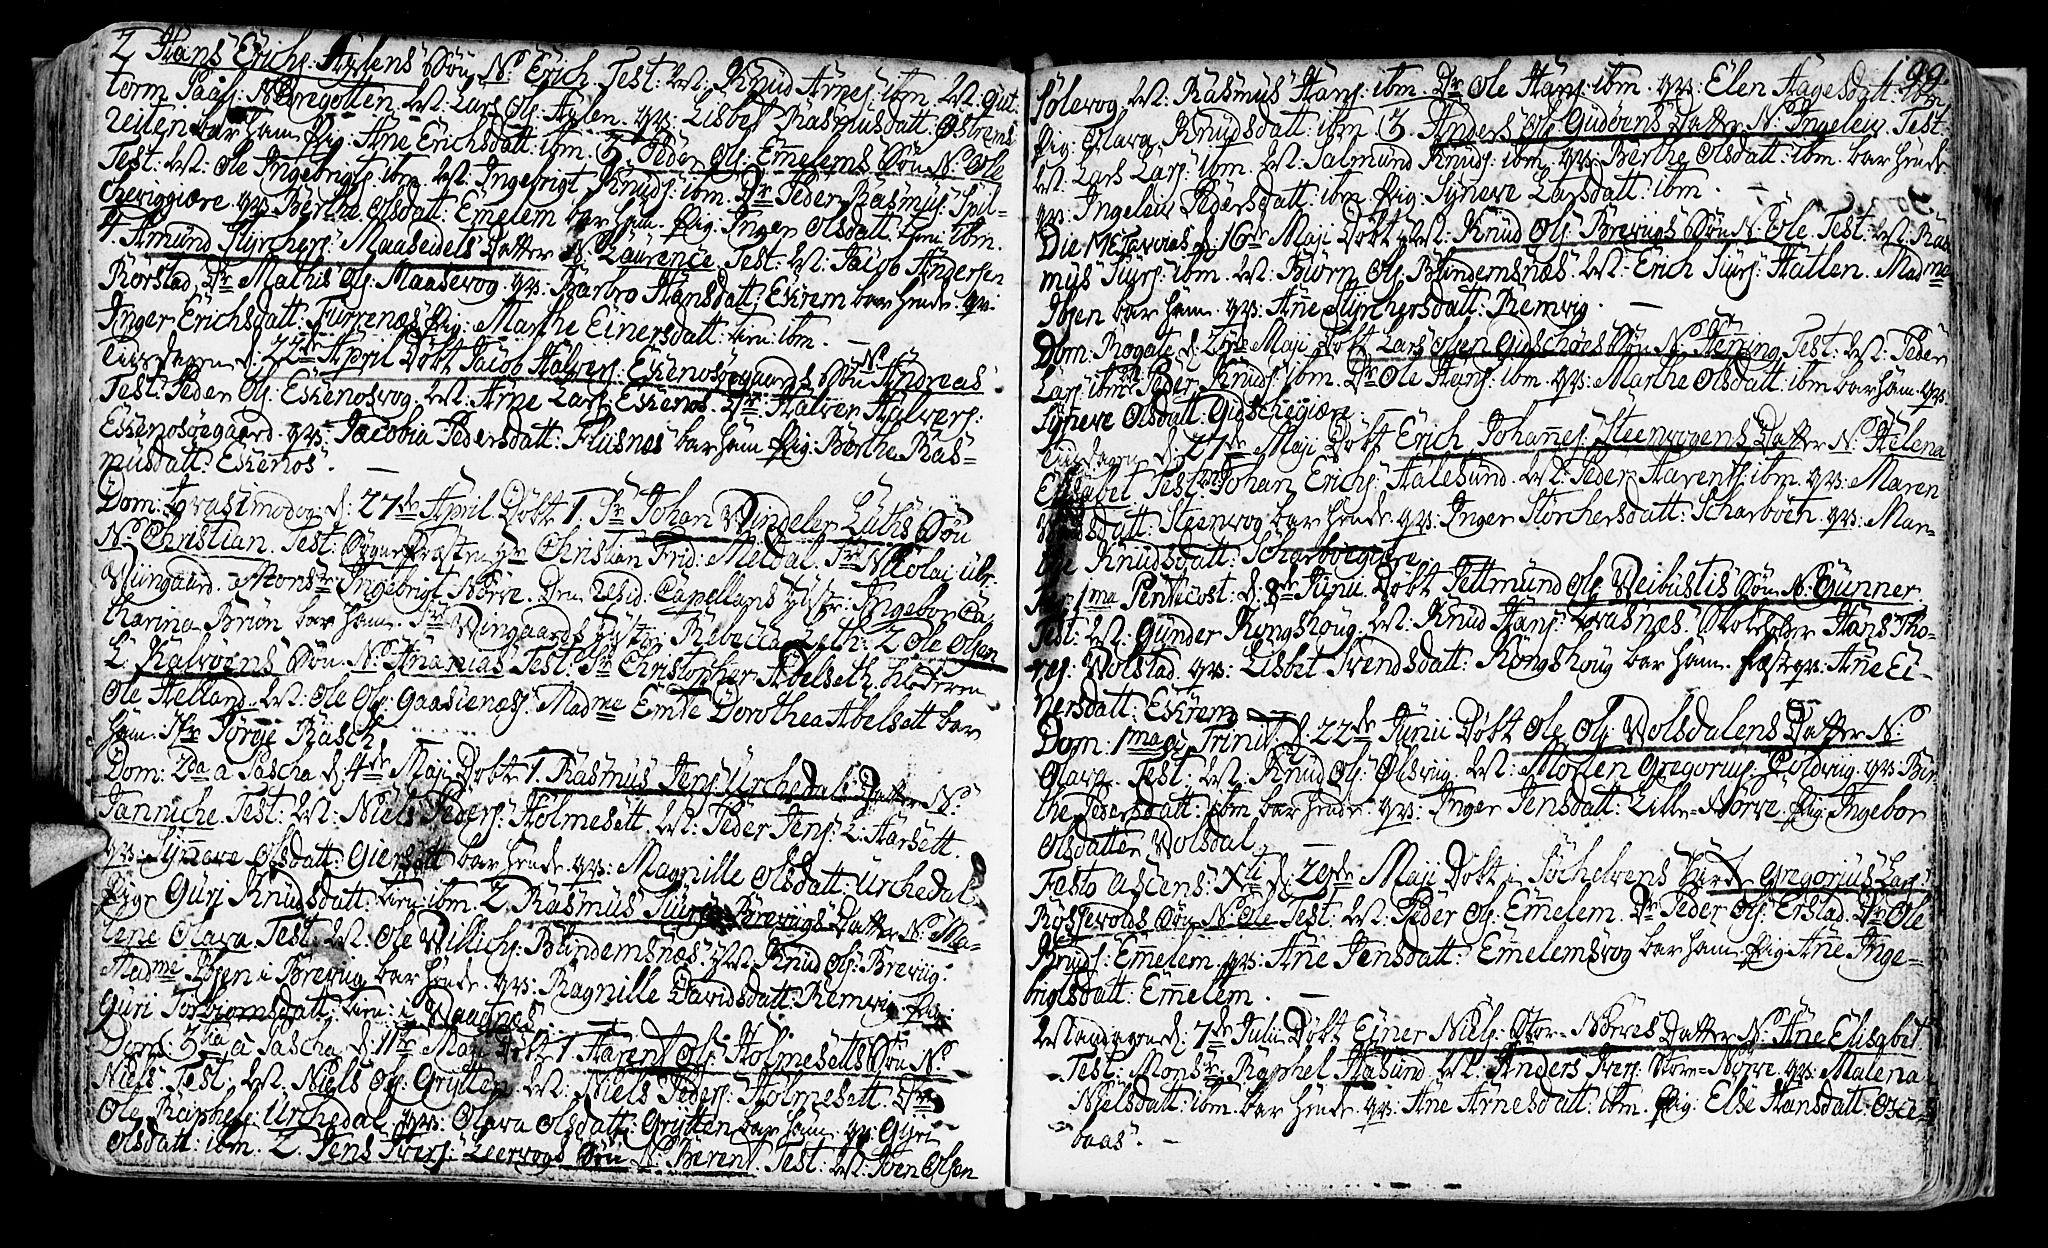 2 Hans Erichs: Hatlens Søn N: Erich. Test: Wel: Knud Arnes: ibm. Wel: Gut
torm Paals: Nøregotten. Wel: Lars Ols: Hatlen. qvs: Lisbet Rasmusdatt: Østrems
reiten bar ham. Pig: Ane Erichsdatt: ibm. 3. Peder Ols: Emelems Søn N: Ole
Test: Wel: Ole Ingebrigts: ibm. Wel: Ingebrigt Knuds: ibm. Dr: Peder Rasmus: Spil-
cheviggiære. qvs: Berthe Olsdatt: Emelem bar ham. Pig: Inger Olsdatt: tien: ibm.
4. Amund Styrchers: Maaseidets Datter N: Laurence. Test: Wel: Jacob Andersen
Rørstad. Dr: Mathis Ols: Maasevog. qvs: Barbro Hansdatt: Eskrem bar hende. qvs:
Inger Erichsdatt: Furrenæs. Pig: Marthe Einersdatt: tien: ibm.
Tiirsdagen d: 22de April Døbt Jacob Halvers: Eskenosøegaards Søn N: Andreas
Test: Peder Ols: Eskenosvog. Wel: Arne Lars: Eskenos. Dr: Halver Halvers:
Eskenosøegaard. qvs: Jacobia Pedersdatt: Flusnæs bar ham. Pig: Berthe Ras-
musdatt: Eskenos.
Dom: Qvasimodog: d: 27de April Døbt 1 Sr Johan Windeler Lüths Søn
N: Christian. Test: Sogne Præsten Hr Christian Frid: Meldal. Sr Nicolai Ulr:
Wiingaard. Monsr Ingebrigt Nørve. Den resid: Capellans Hustr: Ingebor Ca
tharina Briøn bar ham. Sr Wingaards Hustr: Rebecca Leth: 2 Ole Olsen
L: Kalvøens Søn N: Ananias Test: Sr Christopher Abelseth. Klocheren
Ole Helland. Wel: Ole Ols: Gaasienæs. Madme Emte Dorothea Abelsett bar
ham. Jfr Børgie Rasch.
Dom: 2da a Pascha d: 4de Maji Døbt 1. Rasmus Jens: Urchedals Datter N:
Janniche. Test: Wel: Niels Peders: Holmesett. Wel: Peder Jens: L: Harsett.
qvs: Synneve Olsdatt: Giersett bar hende. qvs: Magnille Olsdatt: Urchedal
Pige Guri Knudsdatt: tien: ibm. 2. Rasmus Siurs: Breviigs Datter N: Ma-
lene Olava. Test: Wel: Ole Willichs: Blindemsnæs. Wel: Knud Ols: Breviig.
Madme Ibsen i Breviig bar hende. qvs: Ragnille Davidsdatt: Remvig. Pig:
Guri Torbiornsdatt: tien: i Vaagnæs.
Dom: 3tia a Pascha d: 11te Maji Døbt 1 Harent Ols: Holmesetts Søn N:
Niels. Test: Wel: Niels Ols: Grytten. Wel: Niels Peders: Holmesett. Dr:
Ole Raphels: Urchedal. qvs: Olava Olsdatt: Grytten bar ham. qvs: Gyri
Olsdatt: ibm. 2. Jens Ivers: Leervogs Søn N: Berent Test: Wel: Iven Olsen
199.
Sølevog. Wel: Rasmus Hans: ibm. Dr Ole Hans: ibm. qvs: Elen Hagesdatt: ibm
Pig: Olava Knudsdatt: ibm. 3 Anders Ols: Gudøens Datter N: Ingelew. Test:
Wel: Lars Lars: ibm. Wel: Salmund Knuds: ibm. qvs: Berthe Olsdatt: ibm. bar hende.
qvs: Ingelew Pedersdatt: ibm. Pig: Syneve Larsdatt: ibm.
Die Metavias d: 16de Maji Døbt Knud Ols: Breviigs Søn N: Ole. Test: Wel: Ras
mus Siurs: ibm. Wel: Biørn Ols: Blindemsnæs. Wel: Erich Siurs: Hatlen. Madme
Ibsen bar ham. qvs: Ane Styrchersdatt: Remvig.
Dom: Rogate d: Maji Døbt Lars Olsen Gidschøes Søn N: Hening. Test: Wel: Peder
Lars: ibm. Peder Knuds: ibm. Dr: Ole Hans: ibm. qvs: Marthe Olsdatt: ibm bar ham. qvs:
Syneve Olsdatt: Gidschegiære.
Tiirsdagen d: 27de Maji Døbt Erich Johanes: Steenvogens Datter N: Helena
Elisabet Test: Johan Erichs: Aalesund. Wel: Peder Harents: ibm. qvs: Maren
Steenvog bar hende. qvs: Inger Storchersdatt: Scharbøen. qvs: Mar-
the Knudsdatt: Scharbøegiære.
Fer: 1ma Pentecost: d: 8de Junii Døbt Tettmund Ols: Veibustes Søn N: Gunner.
Test: Wel: Gunder Rongshoug. Wel: Knud Hans: Qvasnæs. Skoleholder Hans Tho-
res: Volstad. qvs: Lisbet Svendsdatt: Rongshoug bar ham. Fæsteqv: Ane Ei-
nersdatt: Eskrem.
Dom: 1ma p: Trinit: d: 22de Junii Døbt Ole Ols: Volsdalens Datter N:
Olava. Test: Wel: Knud Ols: Olsviig. Wel: Morten Gregorius: Poldvig. qvs: Ber
the Pedersdatt: ibm bar hende. qvs: Inger Jensdatt: Lille-Nørve. Pig: Ingebor
Olsdatter Volsdal.
Festo Ascens: Xti d: 29de Maji Døbt i Søchelvens Kirke Gregorius Lars:
Røssevolds Søn N: Ole Test: Wel: Peder Ols: Emelem. Dr: Peder Ols: Erstad. Dr Ole
Knuds: Emelem. qvs: Ane Jensdatt: Emelemsvog bar ham. Pig: Ane Inge-
brigtsdatt: Emelem.
Mandagen d: 7de Julii Døbt Einer Niels: Stor-Nørves Datter N: Ane Elisabet.
Test: Monsr: Raphel Aasund. Wel: Anders Ivers: Store-Nørve. qvs: Malena
Nielsdatt: ibm. bar hende. qvs: Ane Arnesdatt: ibm. Pig: Else Hansdatt: Oxe
baas.